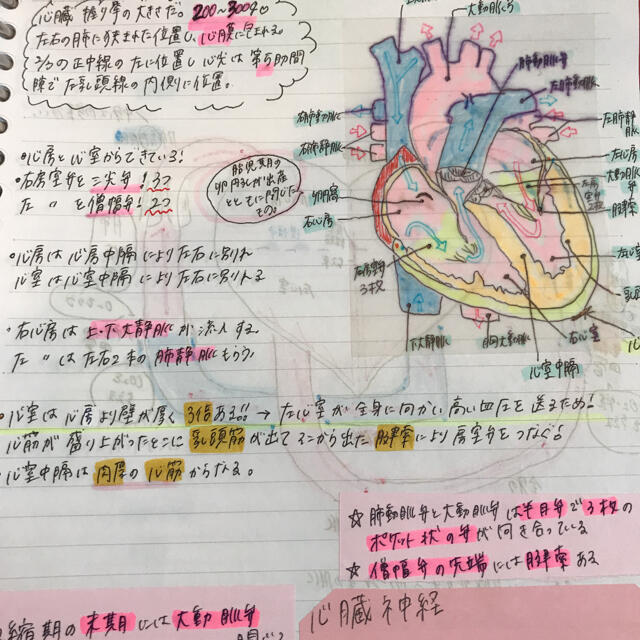 心臓 握り拳の大きさだ。200~300g
左右の肺に挟まれた位置し、心膜に包まれる。
2/3の正中線の左に位置し心尖は第5肋間
隙で左乳頭線の内側に位置。
・心房と心室からできている!
・右房室弁を三尖弁!3つ
左 〃 を僧帽弁!2つ
胎児期の
卵円孔が出産
とともに閉じた
もの。
・心房は心房中隔により左右に別れ
心室は心室中隔により左右に別れる
・右心房は上・下大静脈が流入する。
左 〃 は左右2本の肺静脈もらう
・心室は心房より壁が厚く3倍ある!!→左心室が全身に向かい高い血圧を送るため!
心筋が盛り上がったとこに乳頭筋が出てそこから出た腱索により房室弁をつなぐ!
・心室中隔は肉厚の心筋からなる。
大動脈弓
肺動脈弓
左肺動脈
右肺動脈
左肺静脈
右肺静脈
左心房
大動脈弁
卵円窩
腱索
右心房
右房室弁
3枚
下大静脈
胸大動脈
右心室
心室中隔
☆肺動脈弁と大動脈弁は半月弁で3枚の
ポケット状の弁が向き合っている
☆僧帽弁の先端には腱索ある
縮期の末期には大動脈弁
心臓神経